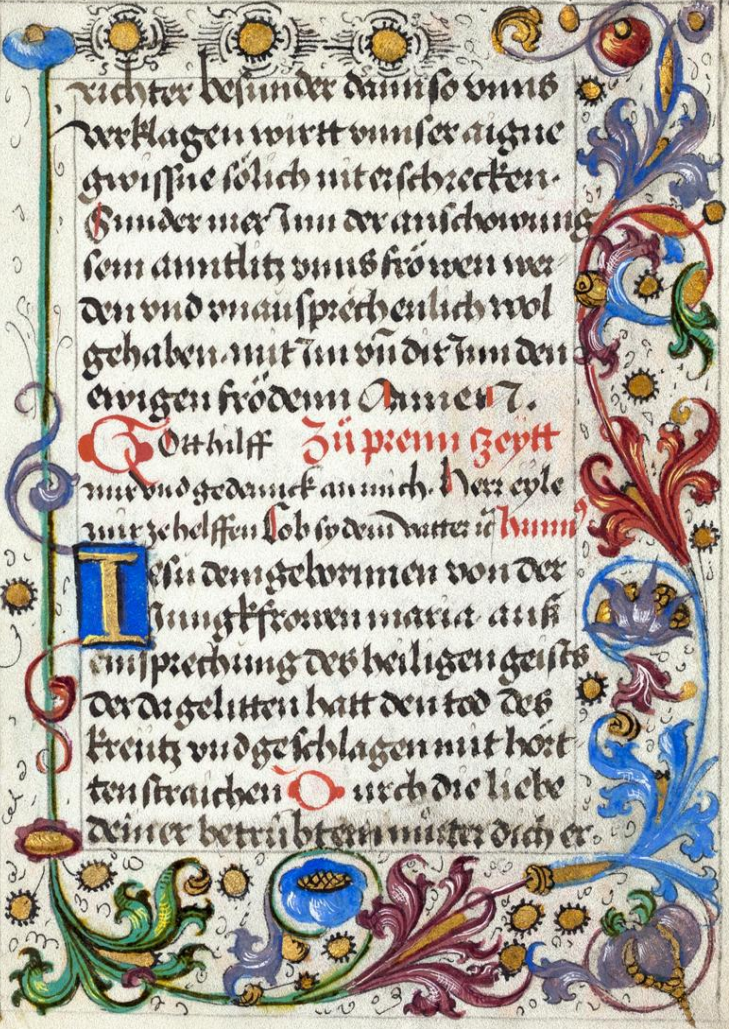 richter besunder dann so vnns
verklagen wirtt vnnser aigne
gwissne sölich nit erschrecken.
Sunder mer Inn der anschowung
sein anntlitz vnns fröwen wer
den vnd vnausprechenlich wol
gehaben. mit Im vn̄ dir Inn den
ewigen frödenn Amen.
Gott hilff Zü prenn czeytt
mir vnd gedennck an mich. Herr eyle
mir ze helffen Lob sy dem vatter
Iesu dem gebornnen von der
Jungkfrowen maria auß
einsprechung des heiligen geists
der da gelitten hatt den tod des
kreutz vnd geschlagen mit hört
ten straichen Durch die liebe
deiner betrübten mutter dich er